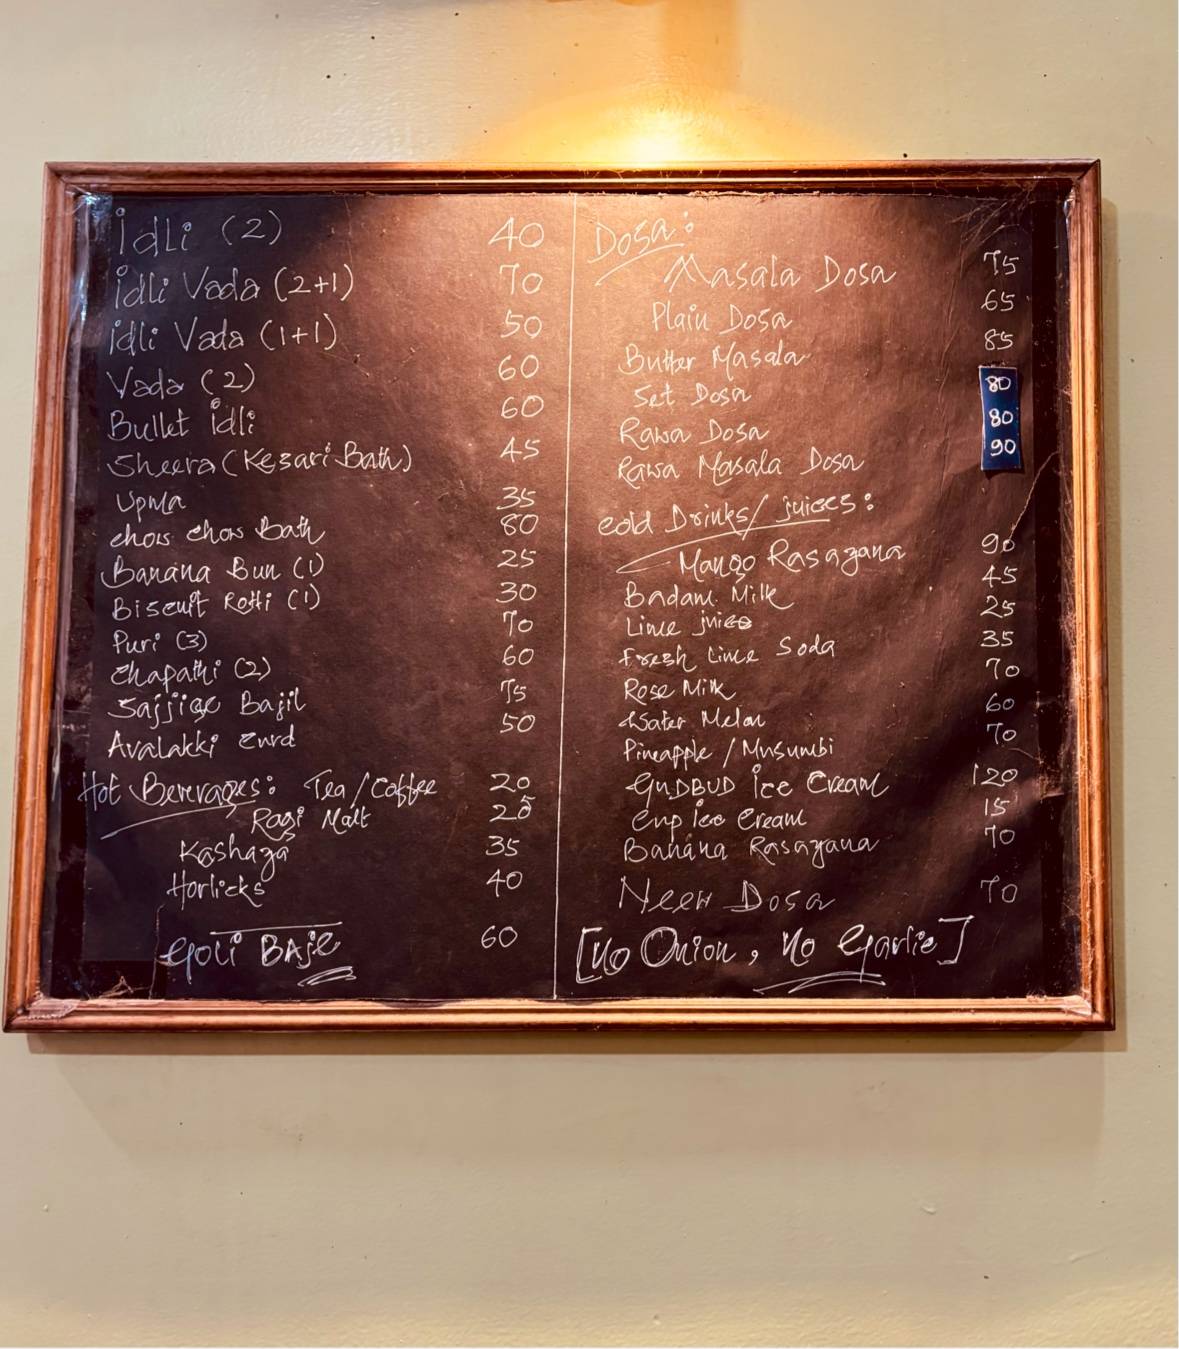 Idli (2) 40
Idli Vada (2+1) 70
idli Vada (1+1) 50
Vada (2) 60
Bullet idli 60
Sheera (Kesari Bath) 45
Upma 35
chow chow Bath 80
Banana Bun (1) 25
Biscuit Rotti (1) 30
Puri (3) 70
Chapathi (2) 60
Sajjige Bajil 75
Avalakki Curd 50
Hot Beverages: Tea/Coffee 20
Ragi Malt 25
Kashaya 35
Horlicks 40
Goli BAJe 60
Dosa:
Masala Dosa 75
Plain Dosa 65
Butter Masala 85
Set Dosa 80
Rawa Dosa 80
Rawa Masala Dosa 90
Cold Drinks/juices:
Mango Rasayana 90
Badam Milk 45
Lime juice 25
Fresh Lime Soda 35
Rose Milk 70
Water Melon 60
Pineapple / Musumbi 70
GUDBUD Ice Cream 120
Cup ice Cream 15
Banana Rasayana 70
Neer Dosa 70
[No Onion, No Garlic]